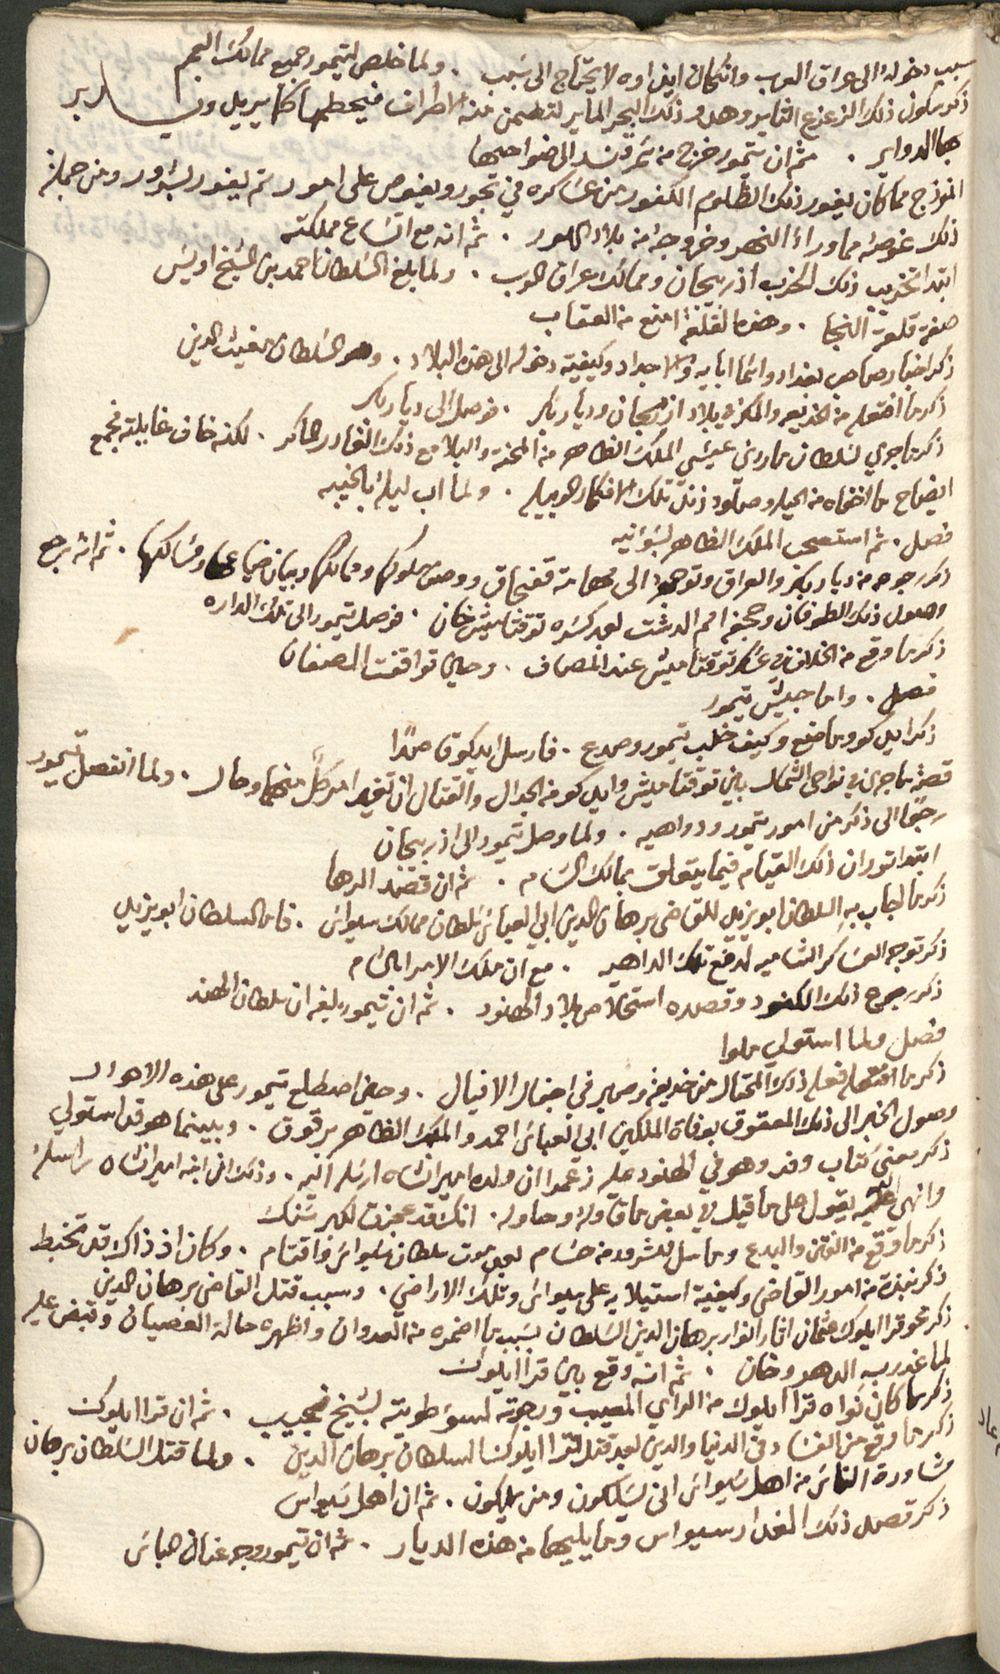 سبب دخوله الى عراق العرب وان كان ايذاوه لا يحتاج الى سبب . ولما خلص لتيمور جميع ممالك العجم
ذكر سكون ذلك الزعزع الثاير وهدو ذلك البحر الماير لتطمين منه الاطراف فيحطمها كما يريد ويدير
بها الدواير . ثم ان تيمور خرج من سمرقند الى ضواحيها
انموذج مما كان يغور ذلك الظلوم الكفور من عساكره في بحور ويغوص على امور ثم يغور بشرور ومن جملة
ذلك غوصه مما وراء النهر وخروجه من بلاد اللور . ثم انه مع اتساع مملكته
ابتدا تخريب ذلك الخرب اذربيجان وممالك عراق العرب . ولما بلغ السلطان احمد بن الشيخ اويس
صفة قلعة النجا . وهذه القلعة امنع من العقاب
ذكر اخبار صاحب بغداد واسما ابايه والاجداد وكيفية دخوله الى هذه البلاد . وهو السلطان مغيث الدين
ذكر ما افتعله من الخديعه والمكر في بلاد ارزنجان وديار بكر . فوصل الى ديار بكر
ذكر ما جري لسلطان ماردين عيسي الملك الظاهر من المحنة والبلا مع ذلك الغادر الماكر . لكنه خاف غايلته فجمع
ايضاح ما اخفاه من الحيله وصلود زند تلك الافكار الوبيله . ولما اب ليلة بالخيبه
فصل . ثم استصحب الملك الظاهر بسوانيه
ذكر رجوعه من ديار بكر والعراق وتوجهه الى مهامه قفجاق ووصف ملوكها وممالكها وبيان ضياعها ومسالكها . ثم انه رجع
وصول ذلك الطوفان وجحفه امم الدشت بعد كسره توقتاميش خان . فوصل تيمور الى تلك الداره
ذكر ما وقع من الخلاف في عسكر توقتاميش عند المصاف . وحين تواقفت الصفان
فصل . واما جيش تيمور
ذكر ايدكو وما صنع وكيف خلب تيمور وصدع . فارسل ايدكو قاصدا
قصة ما جرى في نواحي الشمال بين توقتاميش وايدكو من الجدال والقتال الى ان تغير امر كل منهما وحال . ولما انفصل تيمور
رجعنا الى ذكر من امور تيمور ودواهيه . ولما وصل تيمور الى اذربيجان
ابتدا توران ذلك القتام فيما يتعلق بممالك الشام . ثم ان قصد الرها
ذكر ما اجاب به السلطان ابو يزيد للقاضي برهان الدين ابي العباس سلطان ممالك سيواس . فاما السلطان ابو يزيد
ذكر توجه العساكر الشاميه لدفع تلك الداهيه . مع ان ملك الامرا بالشام
ذكر رجوع ذلك الكنود وقصده استخلاص بلاد الهنود . ثم ان تيمور بلغه ان سلطان الهند
فصل ولما استولي ملوا
ذكر ما افتعله ذلك المحتال من خديعه وصبر في اجفال الافيال . وحين اصطلم تيمور على هذه الاهوال
وصول الخبر الى ذلك المعقوق بوفاة الملكين ابي العباس احمد والملك الظاهر برقوق . وبينما هو قد استولي
ذكر معنى كتاب وفد وهو في الهند عليه زعموا ان ولده اميرانشاه ارسله اليه . وذلك ان ابنه اميرانشاه راسله
وانهى اليه يقول على ما قيل في بعض ما قاوله وحاوله . انك قد عجزت لكبر سنك
ذكر ما وقع من الفتن والبدع وما سل للشرور من حسام بعد موت سلطان سيواس والشام . وكان اذ ذاك قد تخبط
ذكر نبذة من امور القاضي وكيفية استيلايه على سيواس وتلك الاراضي . وسبب قتل القاضي برهان الدين
ذكر محو قرا ايلوك عثمان اثار انوار برهان الدين السلطان بسبب ما اضمره من العدوان واظهره حالة العصيان وقبض عليه
لما غدر به الدهر وخان . ثم انه وقع بين قرا ايلوك
ذكر ما كان نواه قرا ايلوك من الراي المصيب ورجوعه لسوء طويته لشيخ نجيب . ثم ان قرا ايلوك
ذكر ما وقع من الفساد في الدنيا والدين بعد قتل قرا ايلوك السلطان برهان الدين . ولما قتل السلطان برهان
مشاورة الناس من اهل سيواس انى يسلكون ومن يملكون . ثم ان اهل سيواس
ذكر قصد ذلك الغدار سيواس وما يليها من هذه الديار . ثم ان تيمور وجه عنان الباس